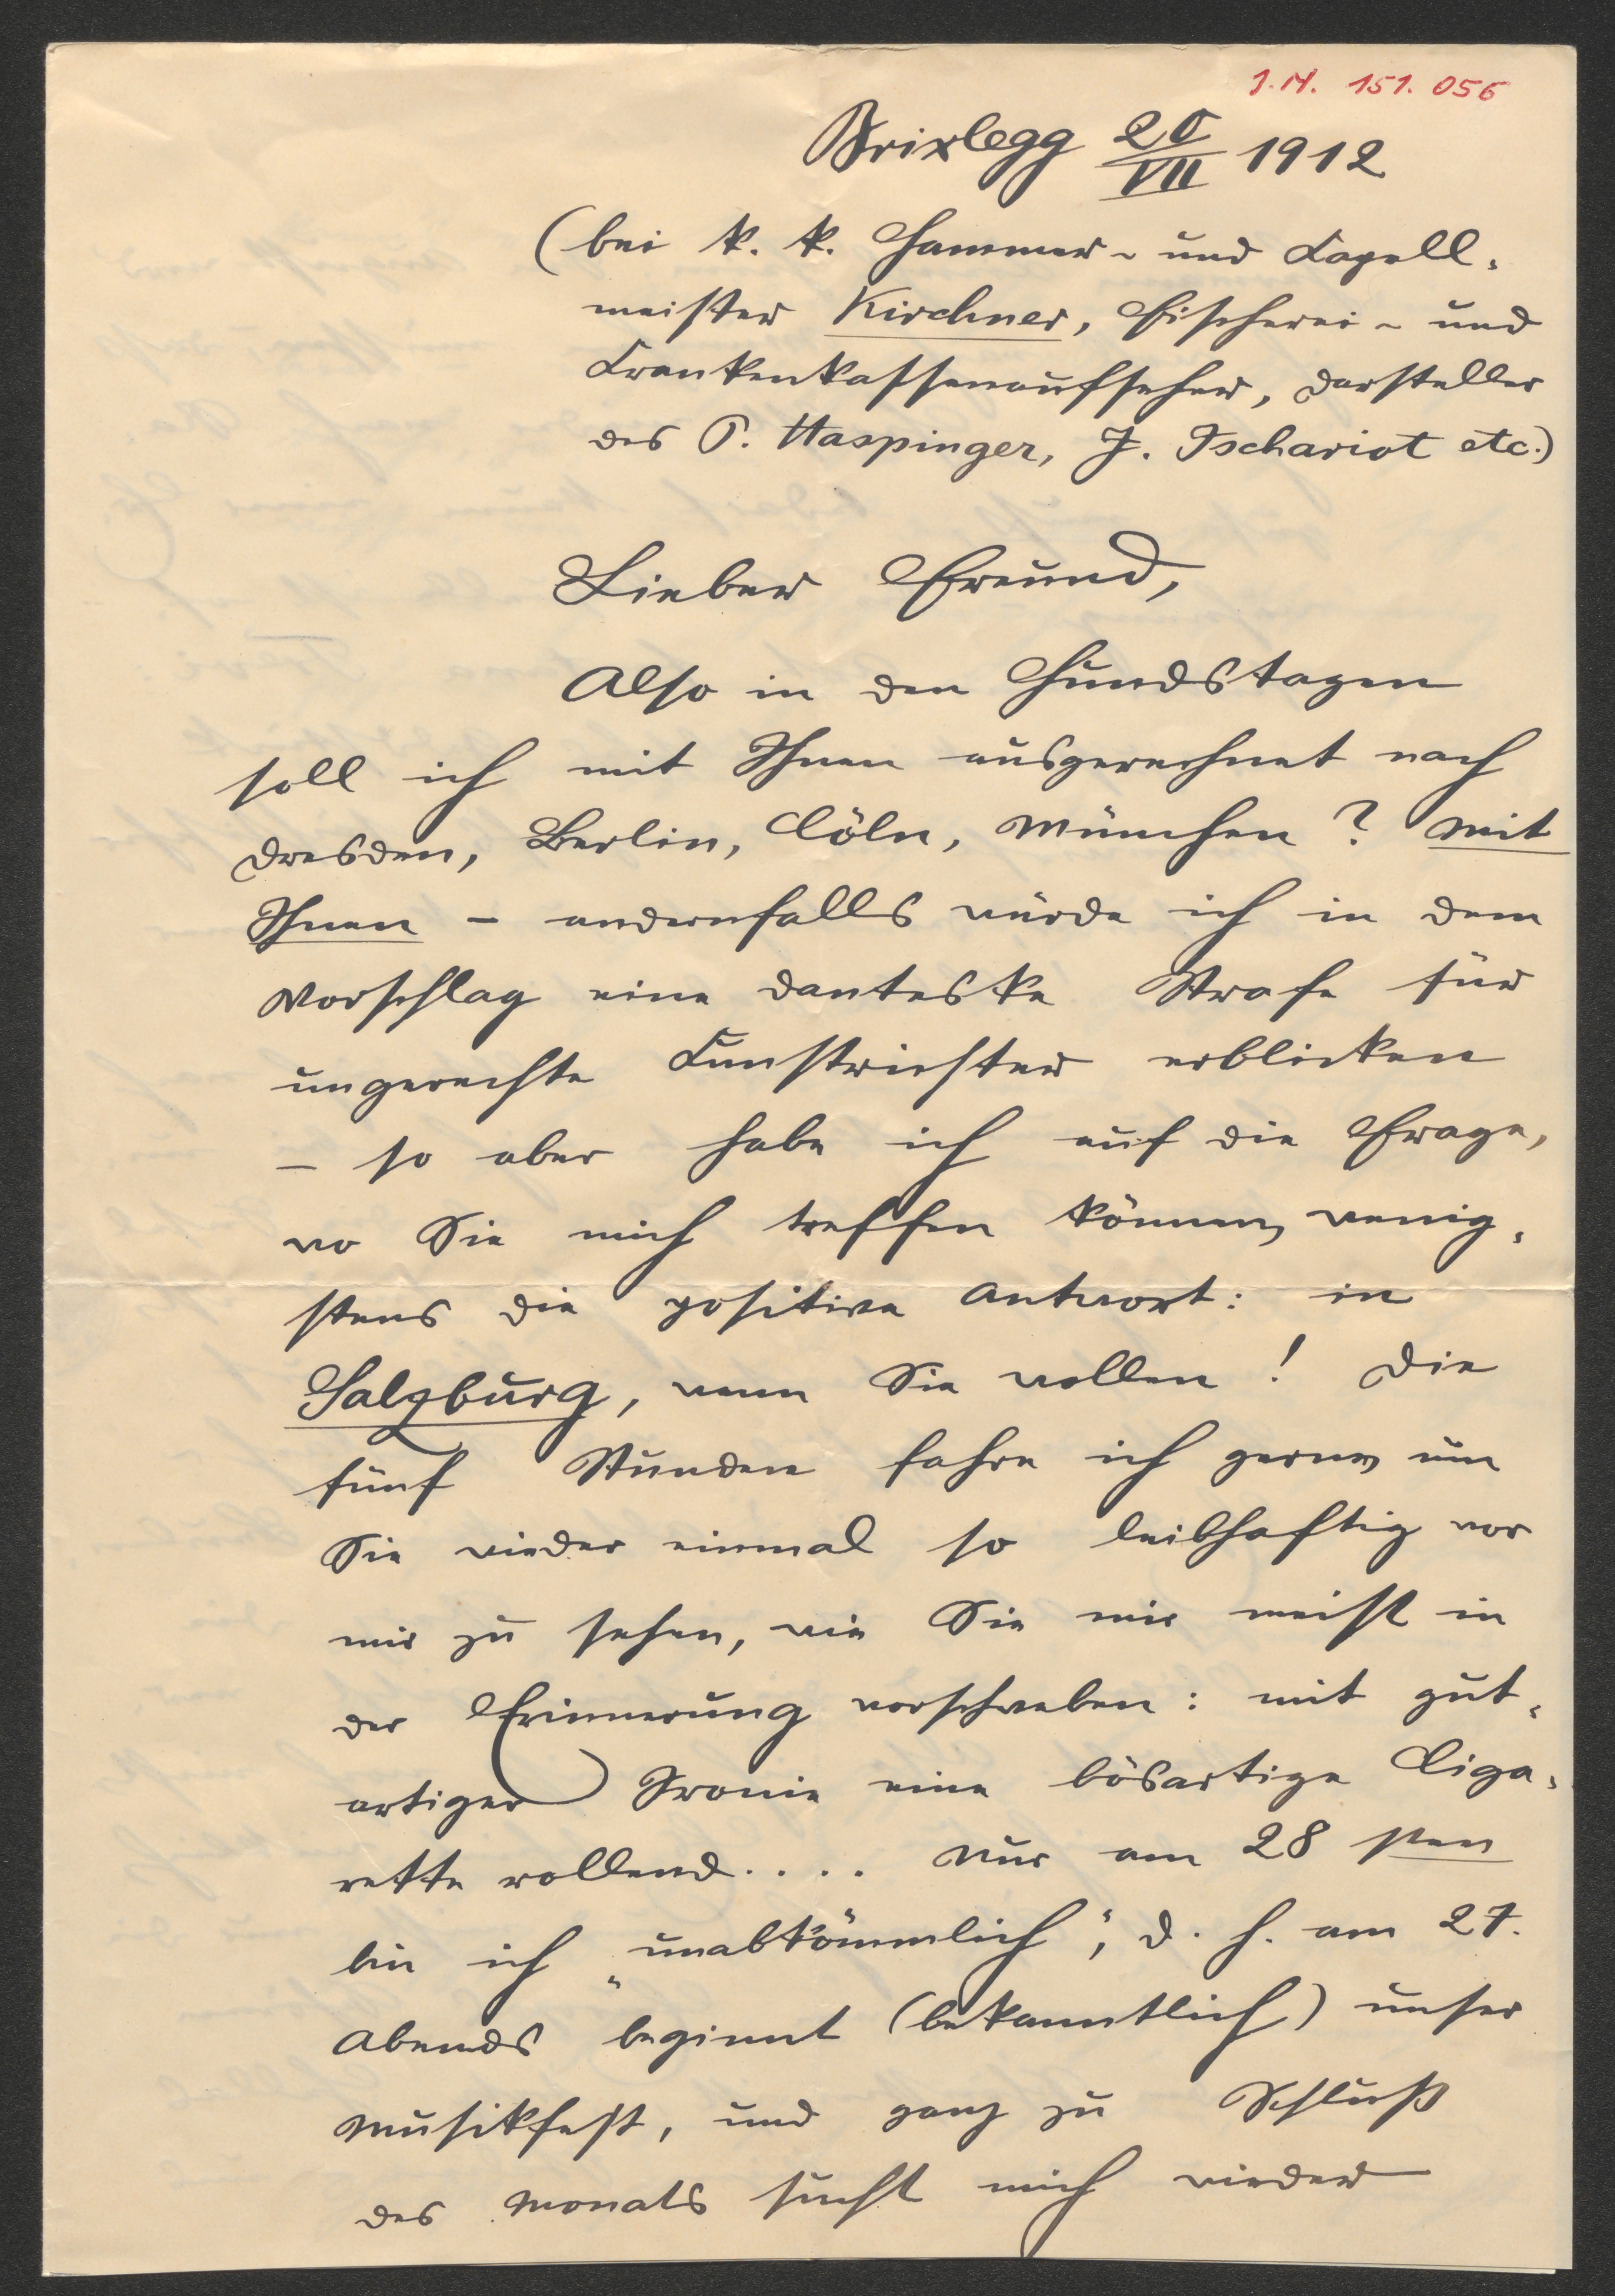 J.N. 151.056
Brixlegg 20/VII 1912
(bei k. k. Hammer- und Kapell-
meister Kirchner, Fischerei- und
Krankenkassenaufseher, Darsteller
des P. Haspinger, J. Ischariot etc.)
Lieber Freund,
Also in den Hundstagen
soll ich mit Ihnen ausgerechnet nach
Dresden, Berlin, Cöln, München? Mit
Ihnen – andernfalls würde ich in dem
Vorschlag eine danteske Strafe für
ungerechte Kunstrichter erblicken
– so aber habe ich auf die Frage,
wo Sie mich treffen können, wenig-
stens die positive Antwort: in
Salzburg, wenn Sie wollen! Die
fünf Stunden fahre ich gern, um
Sie wieder einmal so leibhaftig vor
mir zu sehen, wie Sie mir meist in
der Erinnerung vorschweben: mit gut-
artiger Ironie eine bösartige Ciga-
rette rollend.... Nur am 28sten
bin ich „unabkömmlich“, d. h. am 27.
Abends beginnt (bekanntlich) unser
Musikfest, und ganz zu Schluß
des Monats sucht mich wieder